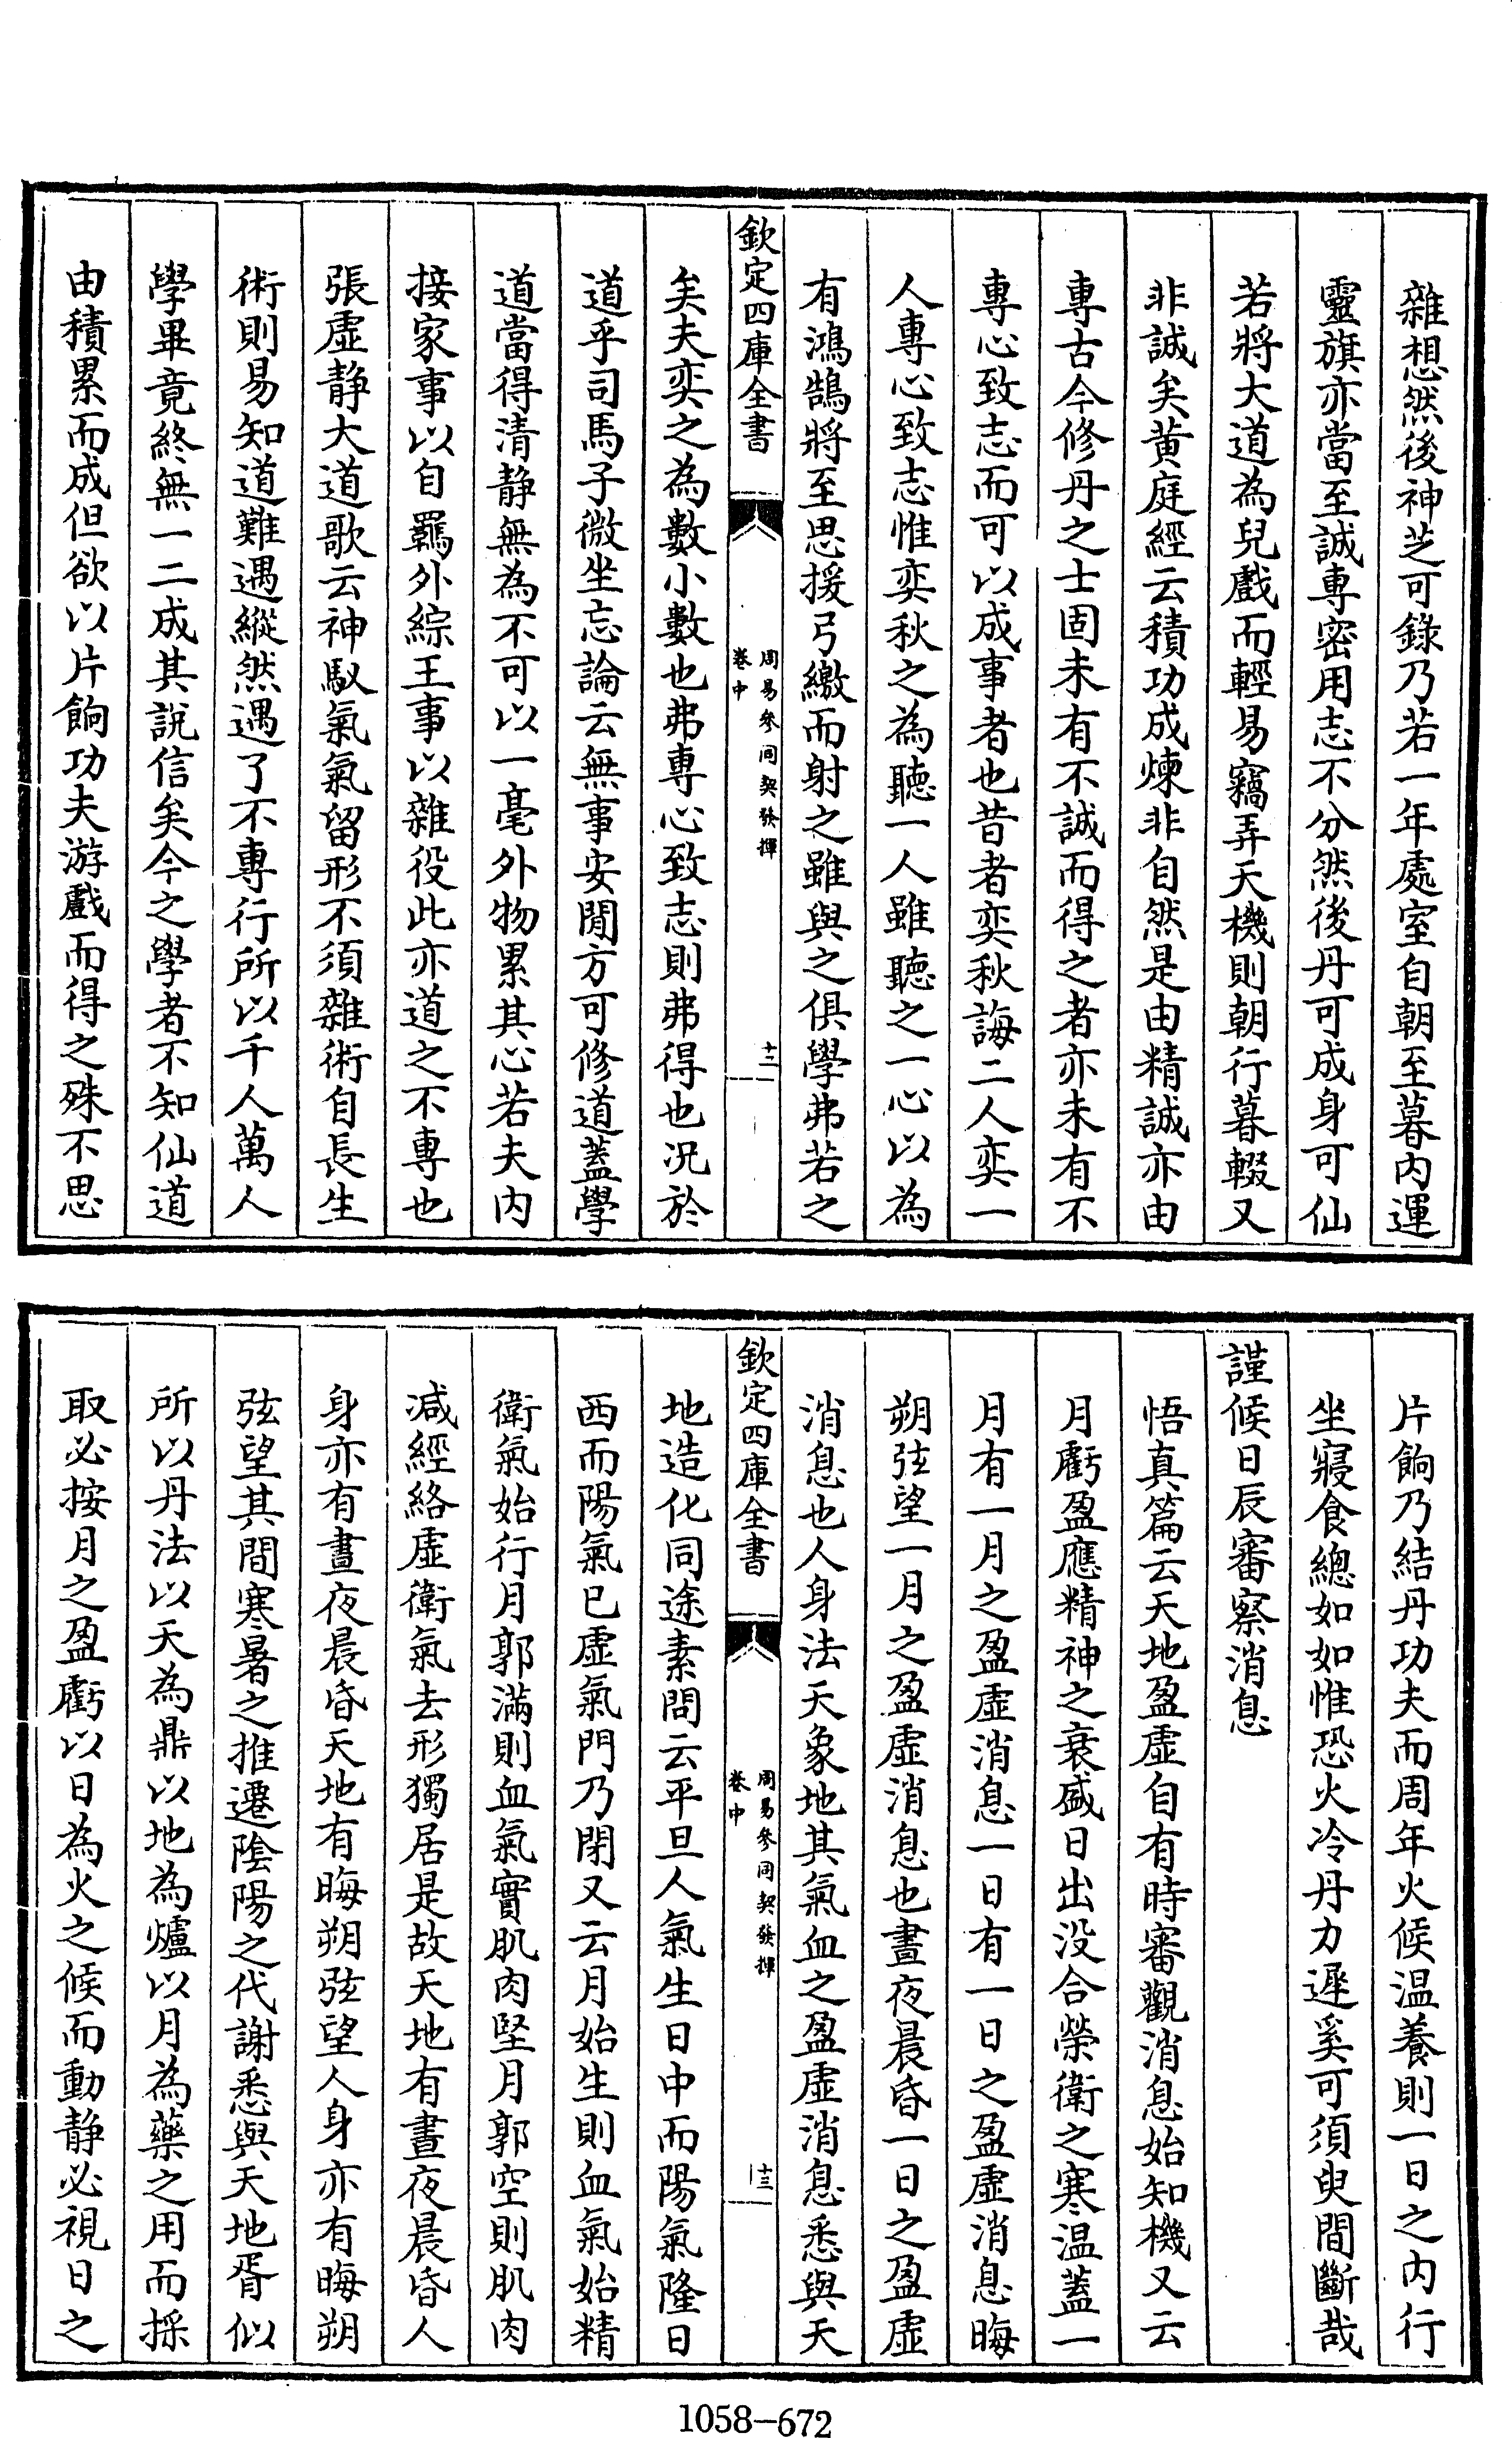 雜想然後神芝可錄乃若一年處室自朝至暮內運
靈旗亦當至誠專密用志不分然後丹可成身可仙
若將大道為兒戲而輕易竊弄天機則朝行暮輟又
非誠矣黃庭經云積功成煉非自然是由精誠亦由
專古今修丹之士固未有不誠而得之者亦未有不
專心致志而可以成事者也昔者奕秋誨二人奕一
人專心致志惟奕秋之為聽一人雖聽之一心以為
有鴻鵠將至思援弓繳而射之雖與之俱學弗若之
欽定四庫全書
周易參同契發揮
卷中
十二
矣夫奕之為數小數也弗專心致志則弗得也況於
道乎司馬子微坐忘論云無事安閒方可修道蓋學
道當得清靜無為不可以一毫外物累其心若夫內
接家事以自羈外綜王事以雜役此亦道之不專也
張虛靜大道歌云神馭氣氣留形不須雜術自長生
術則易知道難遇縱然遇了不專行所以千人萬人
學畢竟終無一二成其說信矣今之學者不知仙道
由積累而成但欲以片餉功夫游戲而得之殊不思
片餉乃結丹功夫而周年火候溫養則一日之內行
坐寢食總如如惟恐火冷丹力遲奚可須臾間斷哉
謹候日辰審察消息
悟真篇云天地盈虛自有時審觀消息始知機又云
月虧盈應精神之衰盛日出沒合榮衛之寒溫蓋一
月有一月之盈虛消息一日有一日之盈虛消息晦
朔弦望一月之盈虛消息也晝夜晨昏一日之盈虛
消息也人身法天象地其氣血之盈虛消息悉與天
欽定四庫全書
周易參同契發揮
卷中
十三
地造化同途素問云平旦人氣生日中而陽氣隆日
西而陽氣已虛氣門乃閉又云月始生則血氣始精
衛氣始行月郭滿則血氣實肌肉堅月郭空則肌肉
減經絡虛衛氣去形獨居是故天地有晝夜晨昏人
身亦有晝夜晨昏天地有晦朔弦望人身亦有晦朔
弦望其間寒暑之推遷陰陽之代謝悉與天地胥似
所以丹法以天為鼎以地為爐以月為藥之用而採
取必按月之盈虧以日為火之候而動靜必視日之
1058-672